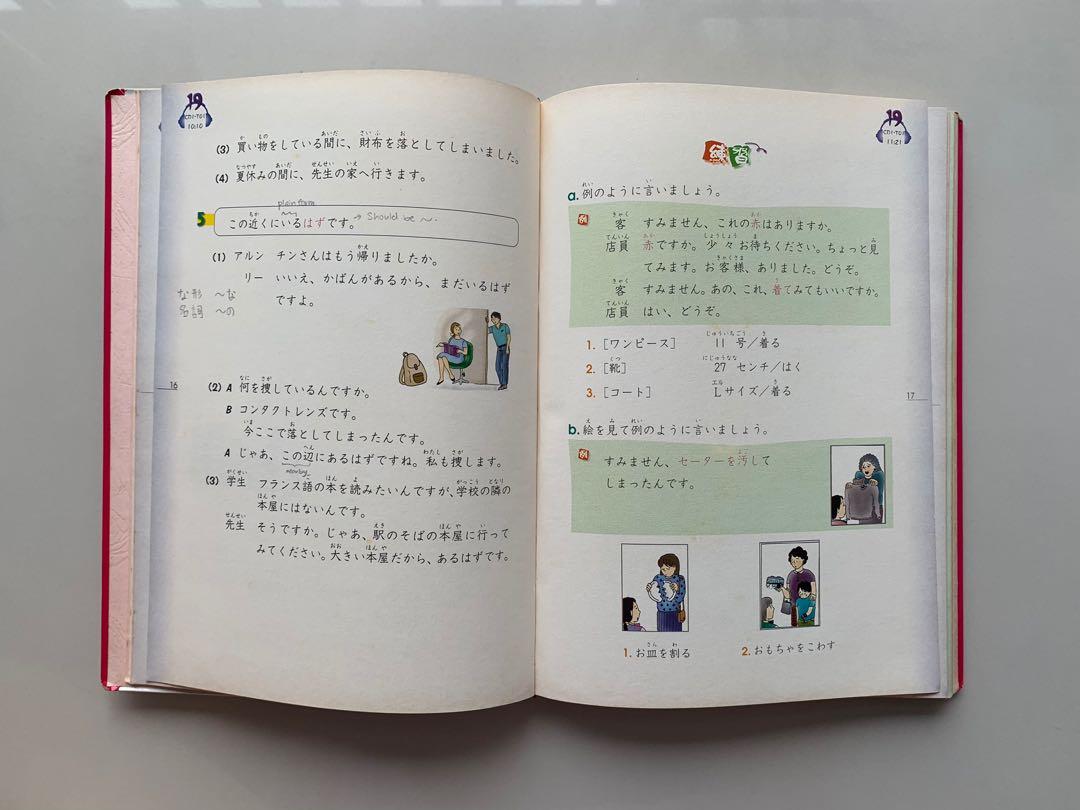 19
CD1-T01
10:10
(3) 買い物をしている間に、財布を落としてしまいました。
(4) 夏休みの間に、先生の家へ行きます。
plain form
5 この近くにいるはずです。 → Should be ~.
(1) アルン チンさんはもう帰りましたか。
リー いいえ、かばんがあるから、まだいるはず
ですよ。
な形 ~な
名詞 ~の
16
(2) A 何を捜しているんですか。
B コンタクトレンズです。
今ここで落としてしまったんです。
A じゃあ、この辺にあるはずですね。私も捜します。
(3) 学生 フランス語の本を読みたいんですが、学校の隣の
本屋にはないんです。
先生 そうですか。じゃあ、駅のそばの本屋に行って
みてください。大きい本屋だから、あるはずです。
19
CD1-T01
11:21
練習
a. 例のように言いましょう。
例 客 すみません、これの赤はありますか。
店員 赤ですか。少々お待ちください。ちょっと見
てみます。お客様、ありました。どうぞ。
客 すみません。あの、これ、着てみてもいいですか。
店員 はい、どうぞ。
1. [ワンピース] 11号/着る
2. [靴] 27センチ/はく
3. [コート] Lサイズ/着る
17
b. 絵を見て例のように言いましょう。
例 すみません、セーターを汚して
しまったんです。
1. お皿を割る
2. おもちゃをこわす